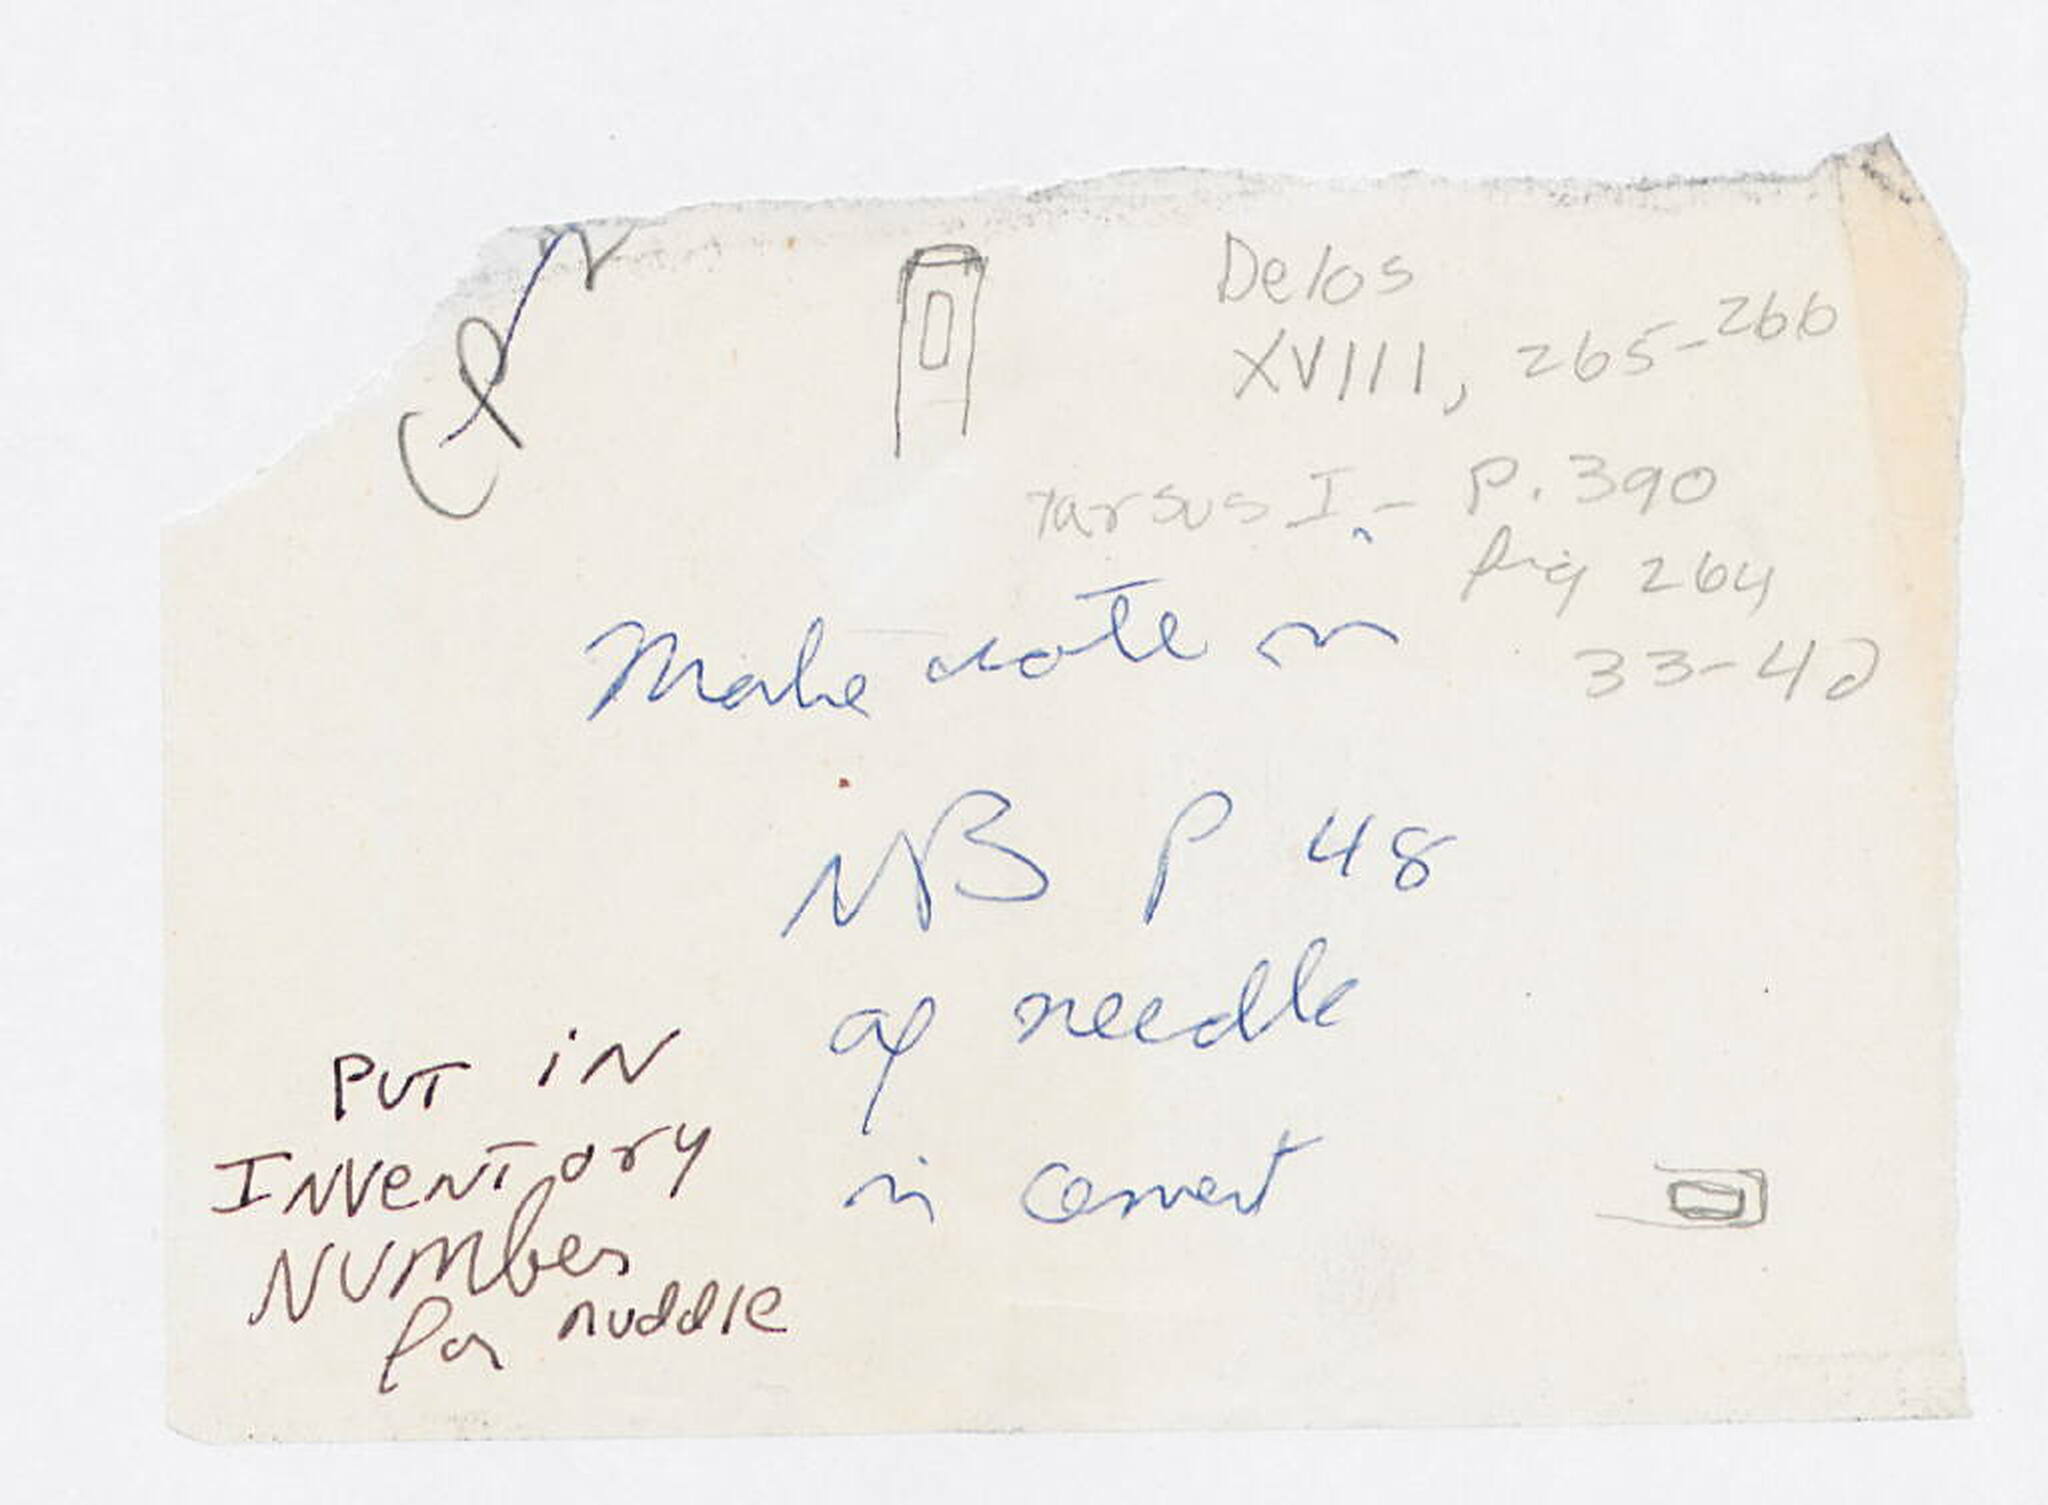 Delos
XVIII, 265-266
Tarsus I - P. 390
fig 264
33-42
Make note on
NB P 48
of needle
in cement
PUT iN
INVENTory
NUMber
for nuddle